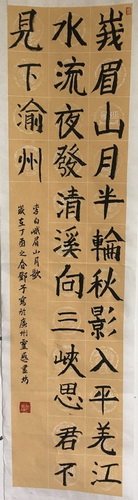 峩眉山月半輪秋影入平羌江
水流夜發清溪向三峽思君不
見下渝州
李白峨眉山月歌
歲在丁酉之鄧予寫於廣州